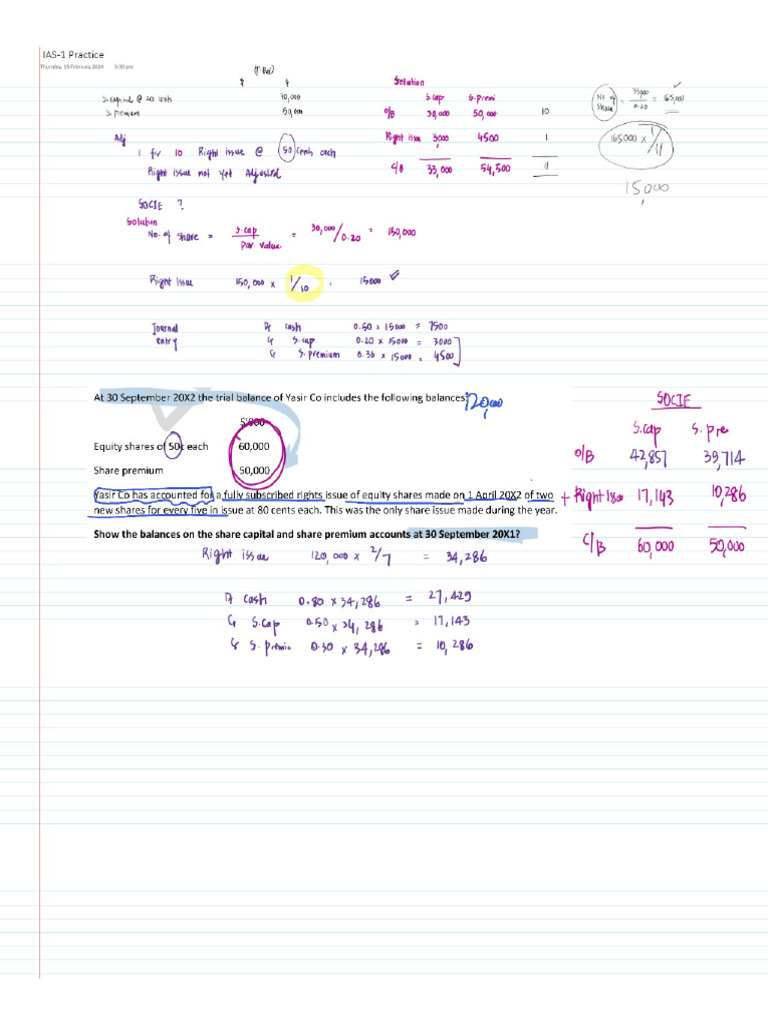 IAS-1 Practice
Thursday, 15 February 2024 5:30 pm
$ $
S. capital @ 20 cents 30,000
S. premium 50,000
Adj
1 for 10 Right issue @ 50 cents each
Right issue not yet Adjusted
SOCIE ?
Solution
No. of share = S.cap / Par value = 30,000/0.20 = 150,000
Right Issue 150,000 x 1/10 = 15000
Journal entry
Dr cash 0.50 x 15000 = 7500
Cr S.cap 0.20 x 15000 = 3000
Cr S.premium 0.30 x 15000 = 4500
Solution
S.cap S.premi
O/B 30,000 50,000 10
Right issue 3000 4500 1
C/B 33,000 54,500 11
No of share = 33000/0.20 = 165,000
165000 x 1/11
15,000
At 30 September 20X2 the trial balance of Yasir Co includes the following balances:
120,000
$'000
Equity shares of 50c each 60,000
Share premium 50,000
Yasir Co has accounted for a fully subscribed rights issue of equity shares made on 1 April 20X2 of two
new shares for every five in issue at 80 cents each. This was the only share issue made during the year.
Show the balances on the share capital and share premium accounts at 30 September 20X1?
Right issue 120,000 x 2/7 = 34,286
Dr cash 0.80 x 34,286 = 27,429
Cr S.cap 0.50 x 34,286 = 17,143
Cr S.premiu 0.30 x 34,286 = 10,286
SOCIE
S.cap S.pre
O/B 42,857 39,714
+ Right Issue 17,143 10,286
C/B 60,000 50,000